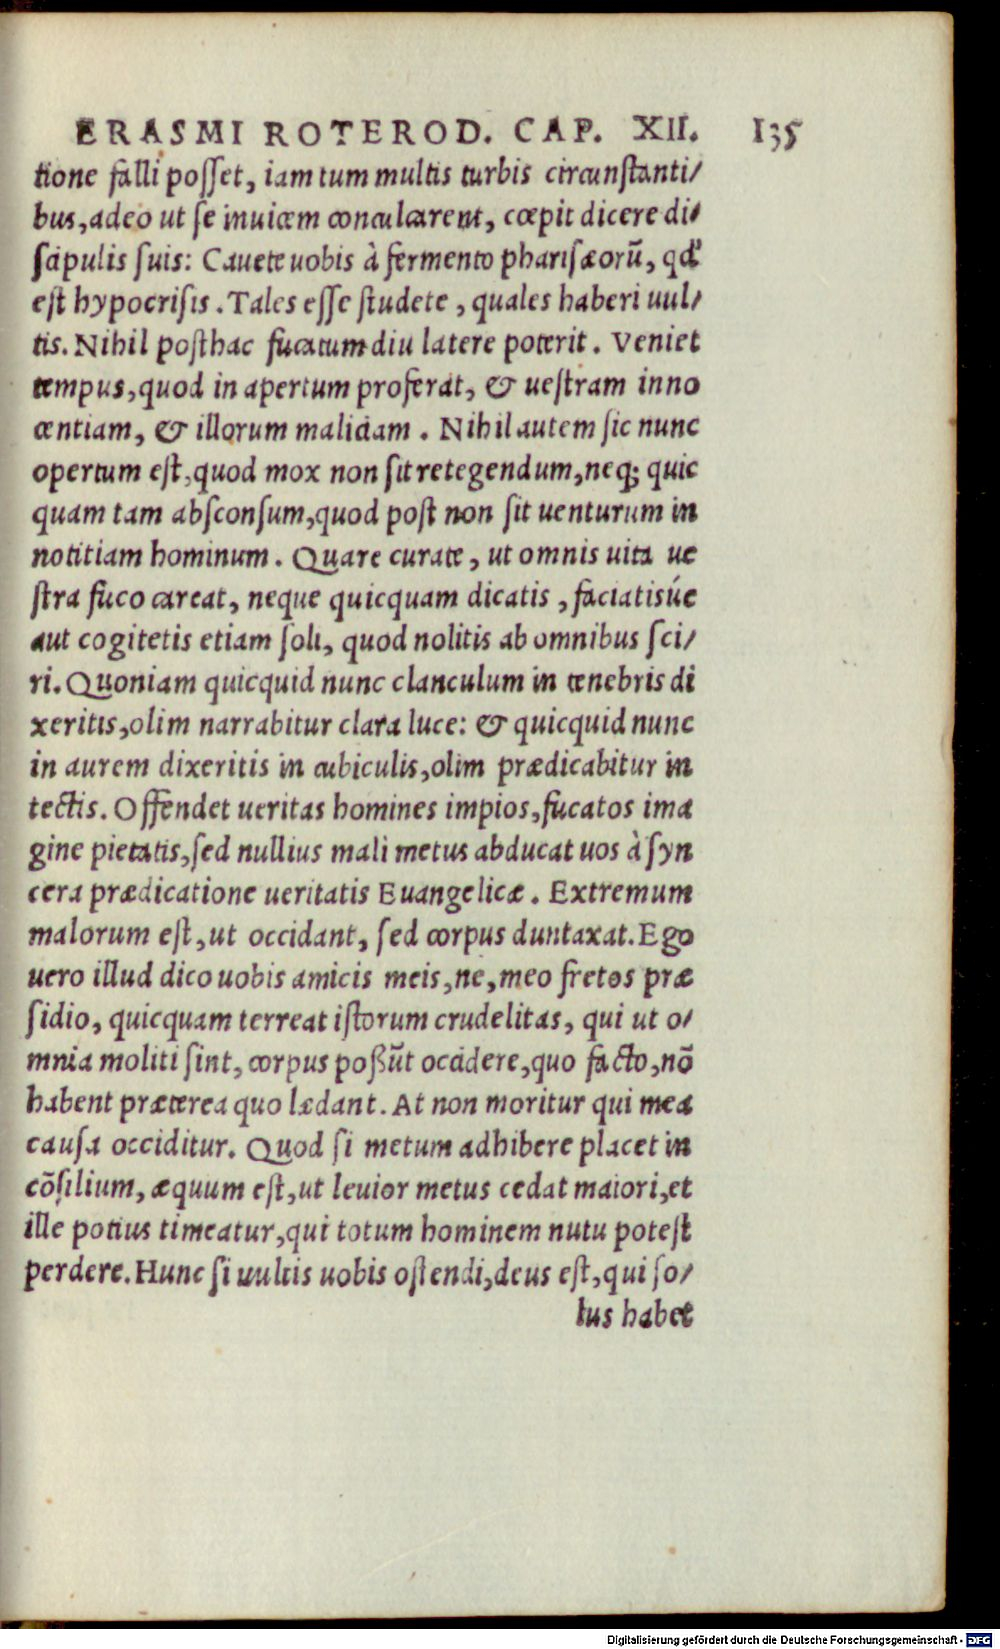 ERASMI ROTEROD. CAP. XII. 135
tione falli posset, iam tum multis turbis circunstanti/
bus, adeo ut se inuicem conculcarent, cœpit dicere di/
scipulis suis: Cauete uobis à fermento pharisæorū, qd'
est hypocrisis. Tales esse studete, quales haberi uul/
tis. Nihil posthac fucatum diu latere poterit. Veniet
tempus, quod in apertum proferat, & uestram inno
centiam, & illorum maliciam. Nihil autem sic nunc
opertum est, quod mox non sit retegendum, neq; quic
quam tam absconsum, quod post non sit uenturum in
notitiam hominum. Quare curate, ut omnis uita ue
stra fuco careat, neque quicquam dicatis, faciatisúe
aut cogitetis etiam soli, quod nolitis ab omnibus sci/
ri. Quoniam quicquid nunc clanculum in tenebris di
xeritis, olim narrabitur clara luce: & quicquid nunc
in aurem dixeritis in cubiculis, olim prædicabitur in
tectis. Offendet ueritas homines impios, fucatos ima
gine pietatis, sed nullius mali metus abducat uos à syn
cera prædicatione ueritatis Euangelicæ. Extremum
malorum est, ut occidant, sed corpus duntaxat. Ego
uero illud dico uobis amicis meis, ne, meo fretos præ
sidio, quicquam terreat istorum crudelitas, qui ut o/
mnia moliti sint, corpus poßūt occidere, quo facto, nō
habent præterea quo lædant. At non moritur qui mea
causa occiditur. Quod si metum adhibere placet in
cōsilium, æquum est, ut leuior metus cedat maiori, et
ille potius timeatur, qui totum hominem nutu potest
perdere. Hunc si uultis uobis ostendi, deus est, qui so/
lus habet
Digitalisierung gefördert durch die Deutsche Forschungsgemeinschaft - DFG